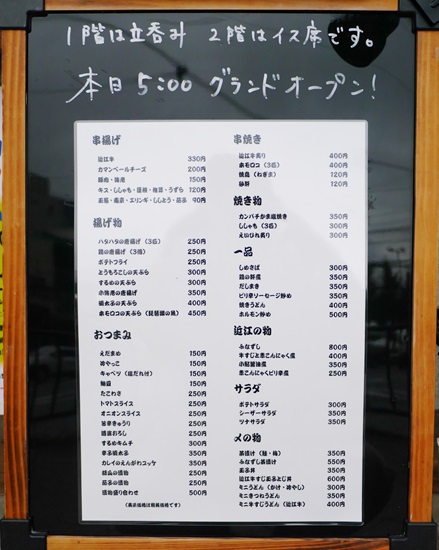 1階は立呑み 2階はイス席です。
本日 5:00 グランドオープン!
串揚げ
近江牛 330円
カマンベールチーズ 200円
150円
120円
90円
揚げ物
ハタハタの唐揚げ(3尾) 250円
鶏の唐揚げ(3個) 250円
ポテトフライ 250円
とうもろこしの天ぷら 300円
するめの天ぷら 300円
小魚の唐揚げ 350円
400円
本モロコの天ぷら(琵琶湖の風) 450円
おつまみ
えだまめ 150円
冷やっこ 150円
キャベツ(塩だれ付) 150円
150円
たこわさ 250円
トマトスライス 250円
オニオンスライス 250円
旨辛きゅうり 250円
250円
するめキムチ 300円
350円
カレイのえんがわユッケ 350円
250円
250円
漬物盛り合わせ 500円
(表示価格は税抜価格です)
串焼き
近江牛炙り 400円
本モロコ(3匹) 400円
焼鳥(ねぎま) 120円
砂肝 120円
焼き物
カンパチかま塩焼き 350円
ししゃも(3匹) 300円
えいひれ炙り 300円
一品
しめさば 300円
300円
だしまき 350円
ピリ辛ソーセージ炒め 350円
焼きうどん 400円
ホルモン炒め 500円
近江の物
ふなずし 800円
牛すじと赤こんにゃく煮 400円
小鮎醤油煮 350円
赤こんにゃくピリ辛煮 250円
サラダ
ポテトサラダ 300円
シーザーサラダ 350円
ツナサラダ 350円
〆の物
茶漬け(鮭・梅) 350円
ふなずし茶漬け 550円
350円
600円
ミニうどん(かけ・冷やし) 300円
ミニきつねうどん 350円
ミニ牛すじうどん(近江牛) 400円